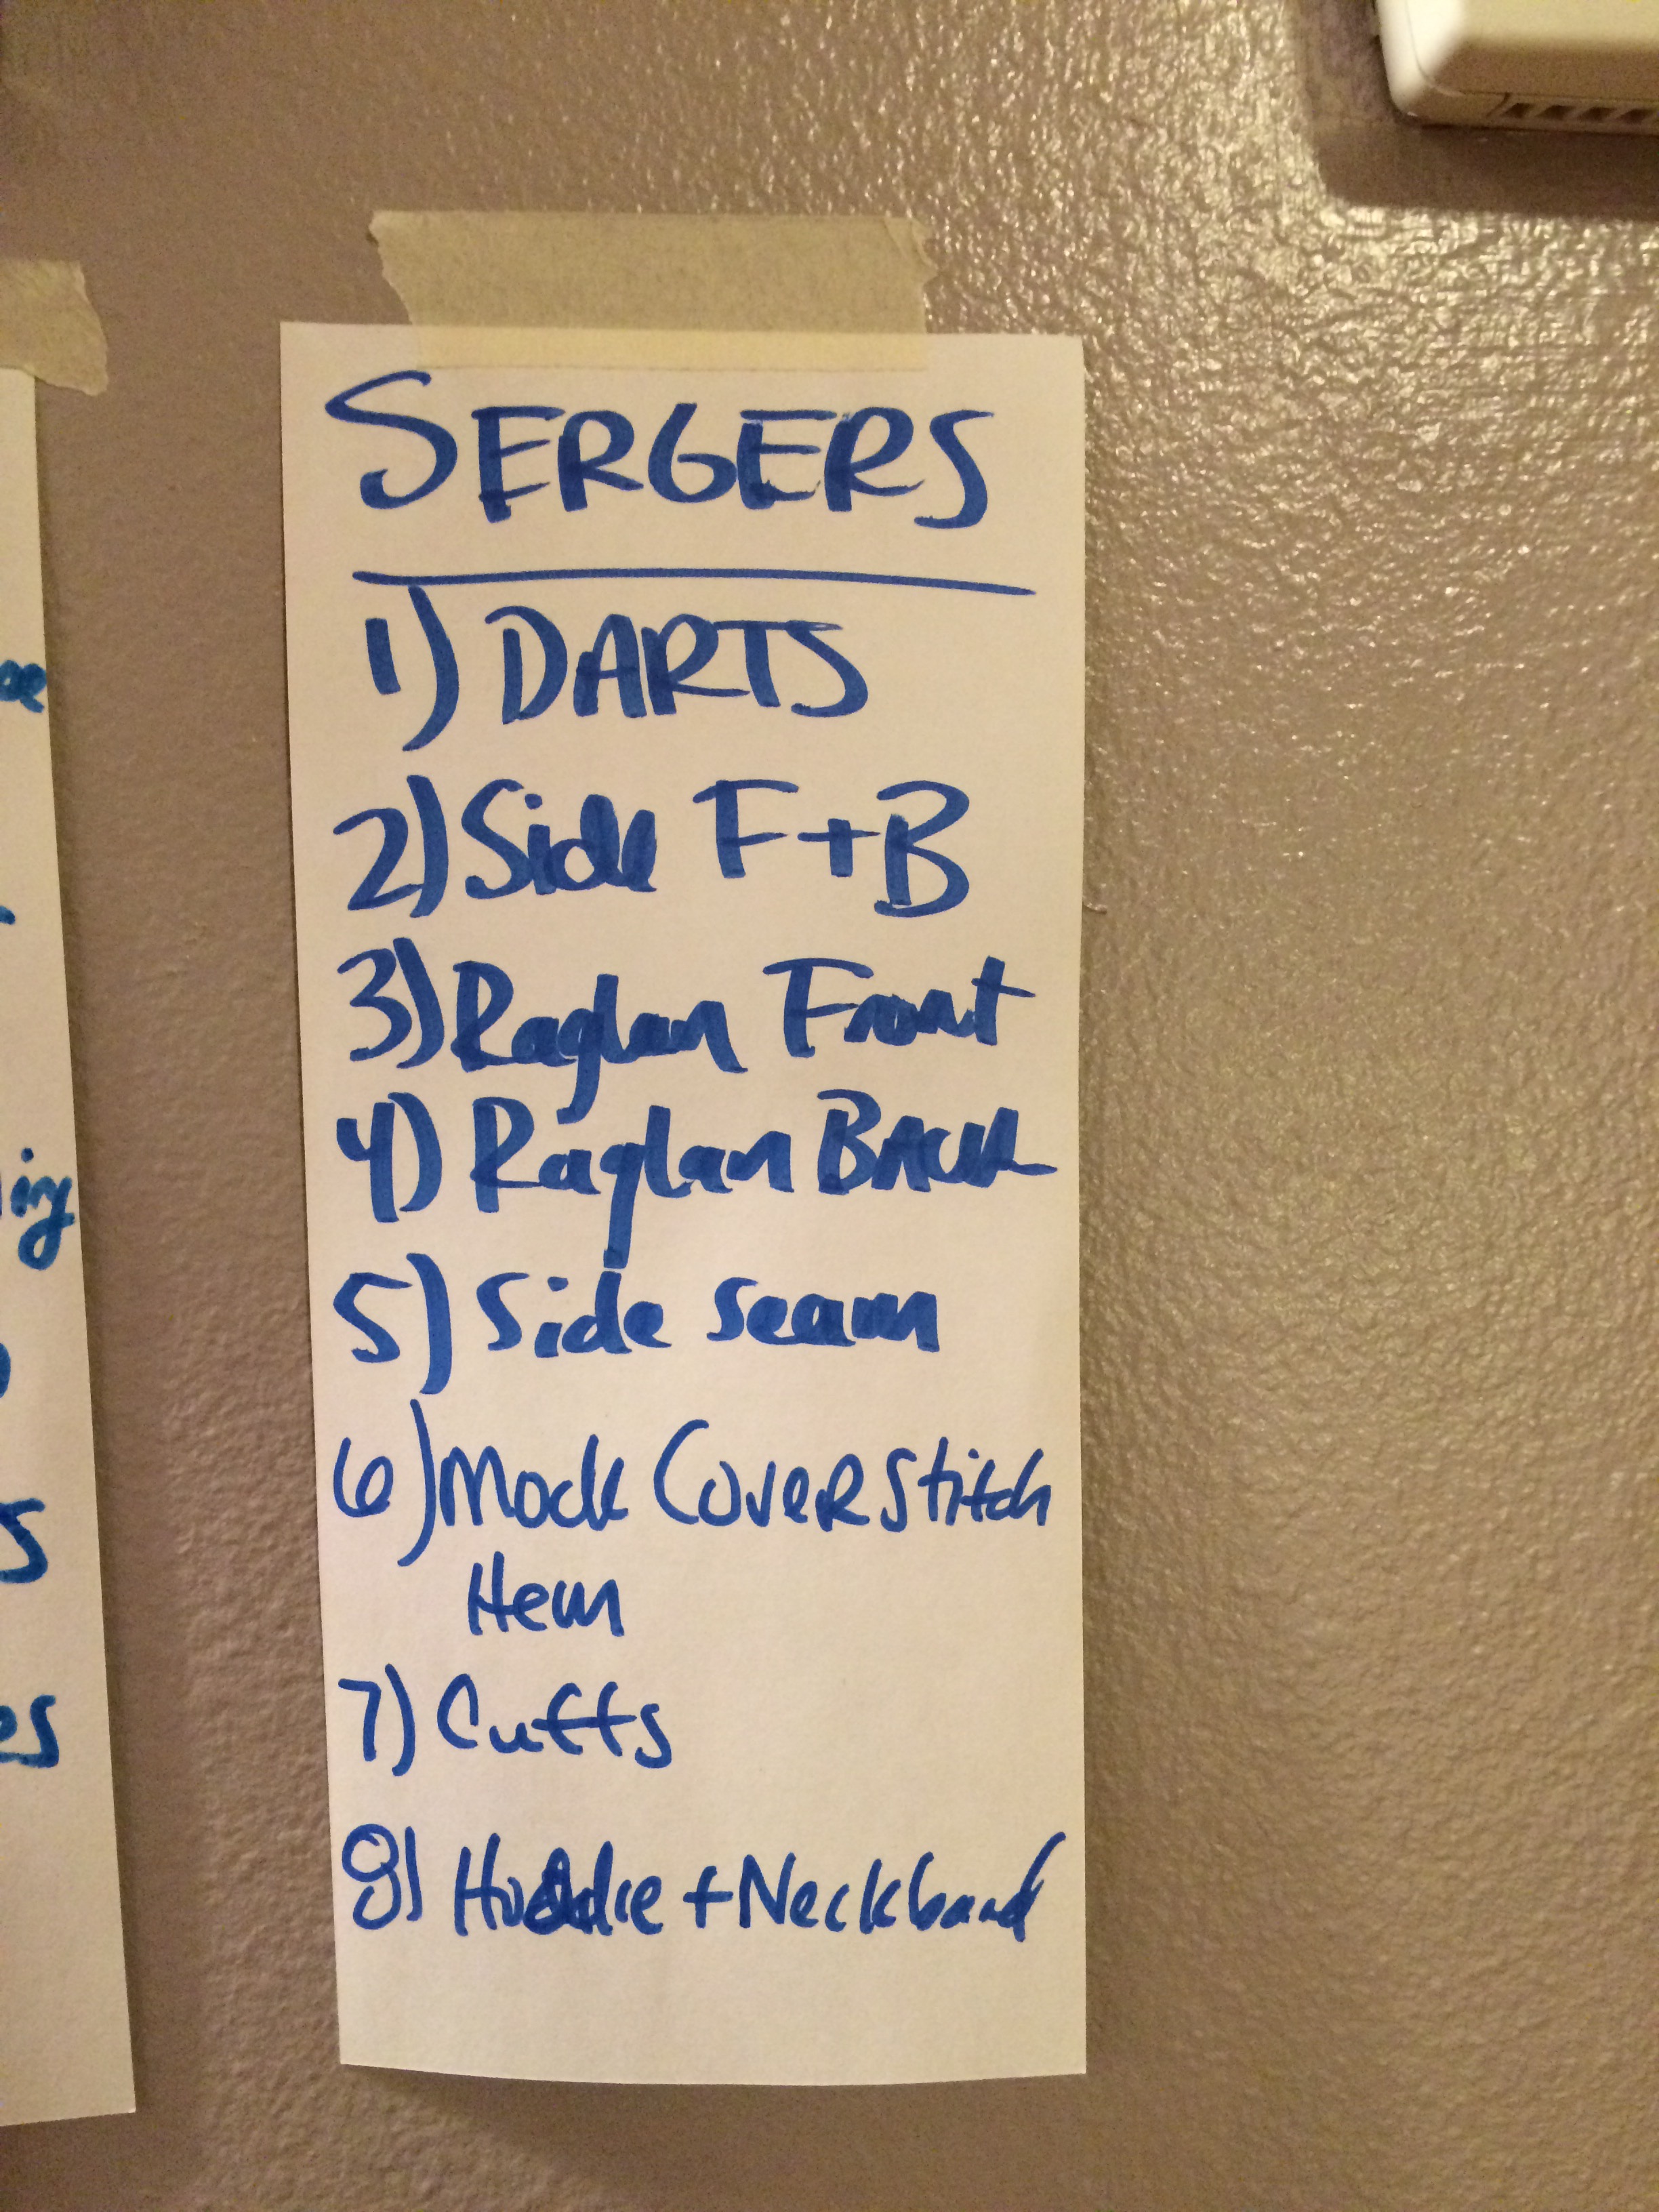 SERGERS
1) DARTS
2) Side F+B
3) Raglan Front
4) Raglan BACK
5) Side Seam
6) Mock Coverstitch
Hem
7) Cuffs
8) Hoodie + Neckband
ing
S
es